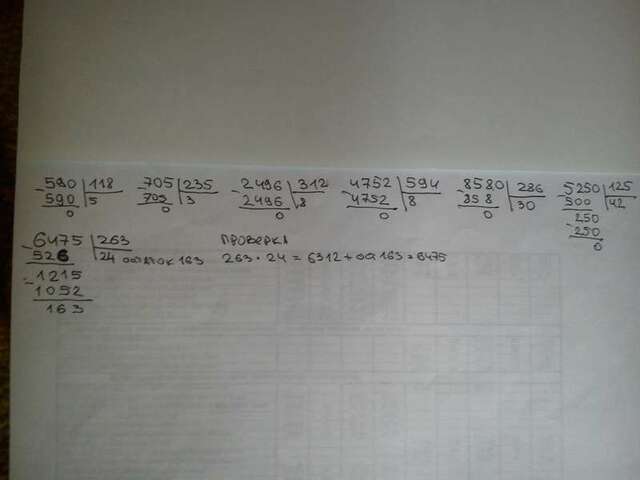 590 118 705 235 2496 312 4752 594 8580 286 5250 125
590 5 705 3 2496 8 4752 8 858 30 500 42
0 0 0 0 0 250
250
0
6475 263 ПРОВЕРКА
526 24 остаток 163 263 · 24 = 6312 + ост 163 = 6475
1215
1052
163